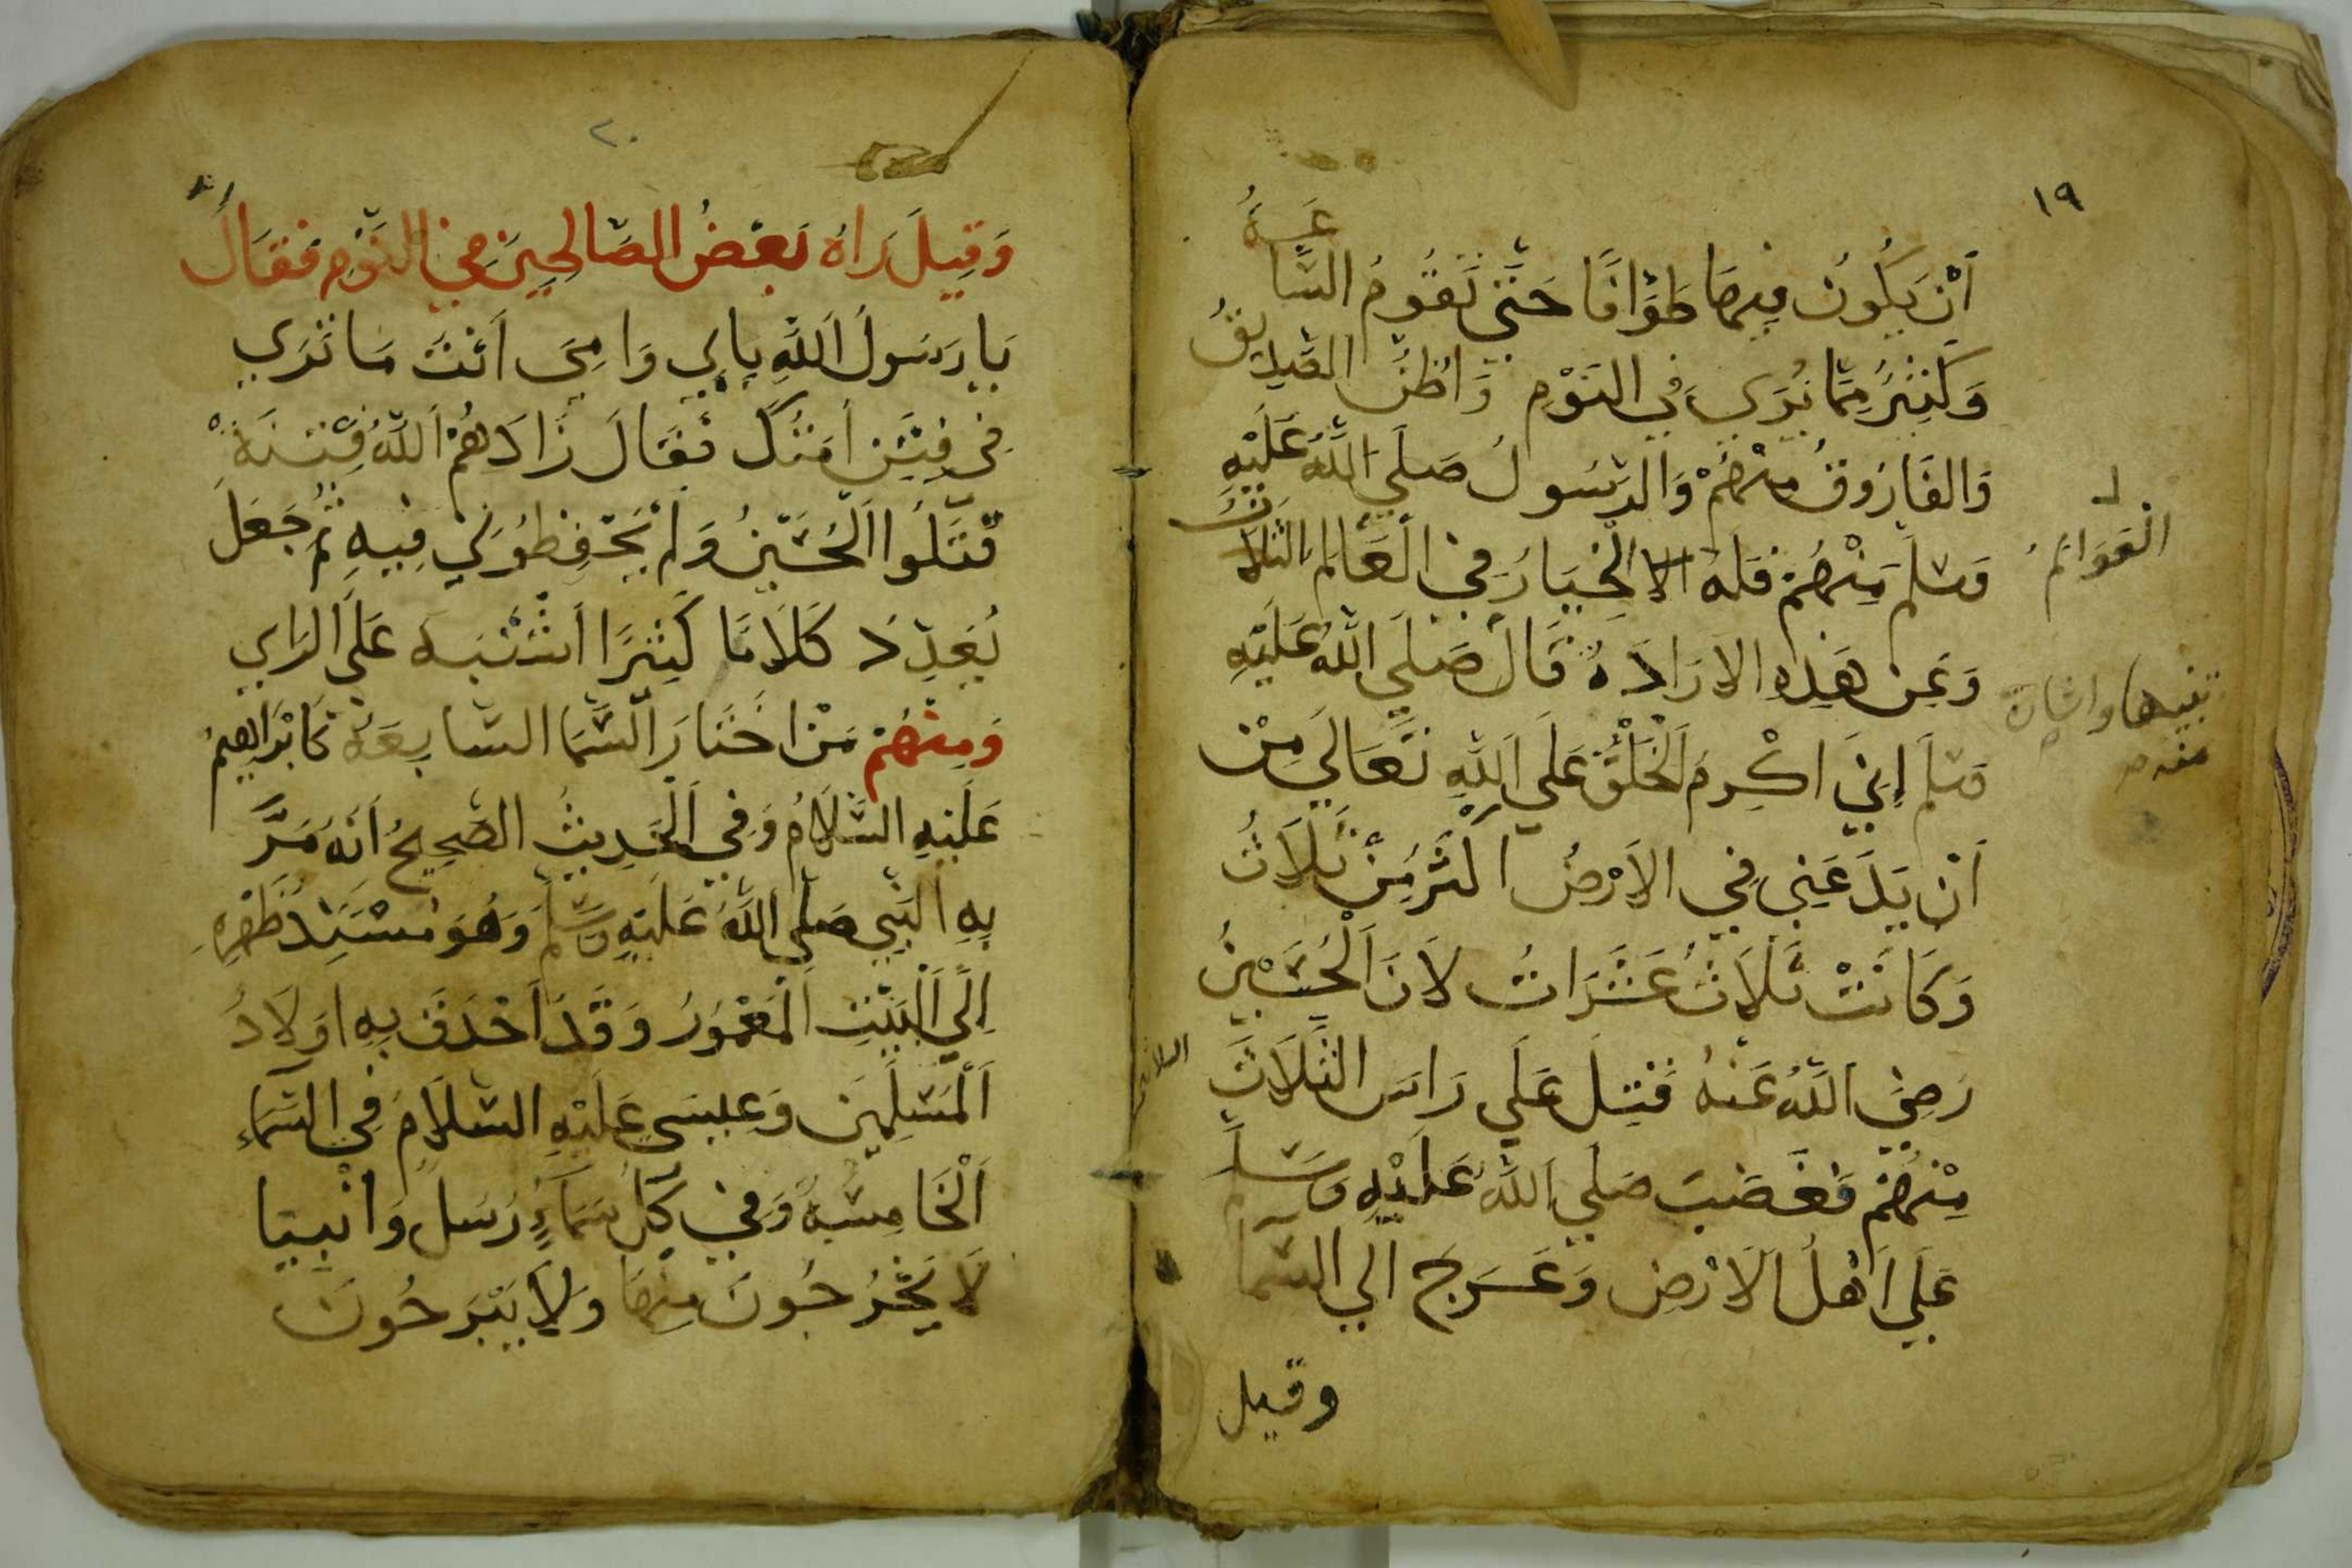 ١٩
أَنْ يَكُونُ فِيهَا طَوَّافًا حَتَّي تَقُومُ السَّاعَةُ
وَكَثِيرٌ مِمَّا يُرَي فِي النَوْمِ وَاظُنُ الصّدِيقُ
وَالفَارُوقُ مِنْهُمْ وَالرسُولُ صَلَي اللَّهُ عَلَيْهِ
وَسَلم مِنْهُمْ فَلَهُ الاخِيَارُ فِي الْعَالَمُ الثَلاثُ
الْعَوَالمُ
وَعَن هَذِهِ الارَادَةُ قَالَ صَلَي اللَّهُ عَلَيْهِ
وسَلم إِنِيَ اكْرِمُ الْخَلْقُ عَلَي اللَّهِ تَعَالَي مِنْ
أَنْ يَدَعَنِي فِي الاَرْضُ اكثَرُ مِنْ ثَلَاثُ
وَكَانَتْ ثَلَاثُ عَشَرَاتُ لاَنَ الْحُسَيْنُ
رَضِيَ اللَّهُ عَنْهُ قُتِلَ عَلَي رَاسَ الثَلَاثَ
مِنْهُمْ فَغَضَبَ صَلَي اللَّهُ عَلَيْهِ وسَلَم
عَلَي اَهْلُ الاَرْضِ وَعَرَجَ الي السَّمَا
وقيل
٢٠
وَقِيلَ رَاهُ بَعْضُ الصَالِحِينَ فِي النَوْمِ فَقَالَ
يَا رَسُولُ اللَّهِ بِابِي وَامِيَ أَنْتَ مَا تَرَي
فِي فِتَنِ أمَتُكَ فَقَالَ زَادَهُمْ اللَّهُ فِتْنَةْ
قَتَلُوا الْحُسَيْنُ وَلَمْ يَحْفِظُونِي فِيهِ ثُم جَعَلَ
يُعَدِدَ كَلَامًا كَثِيرًا اشْتَبَهَ عَلَي الرَاي
وَمِنْهُمْ مَنْ اخْتَارَ السَّمَا السَّابِعَةُ كَابْرَاهِيمُ
عَلَيْهِ السَّلَامُ وَفِي الْحَدِيثُ الصَّحِيحُ اَنَهُ مَرَّ
بِهِ النَبِي صَلَي اللَّهُ عَلَيْهِ وَسَلَم وَهُوَ مُسْنِدُ ظَهْرِهِ
اِلَي الْبَيْتِ الْمَعْمُورُ وَقَدْ اَحْدَقَ بِهِ اوَلَادُ
الْمُسْلِمِينَ وَعِيسَي عَلَيْهِ السَّلَامَ فِي السَّمَاءِ
الْخَامِسَةُ وَفِي كُلِ سَمَاءٍ رُسَلَ وَانْبِيَا
لَا يَخْرُجُونَ مِنْهَا وَلَا يَبْرَحُونَ